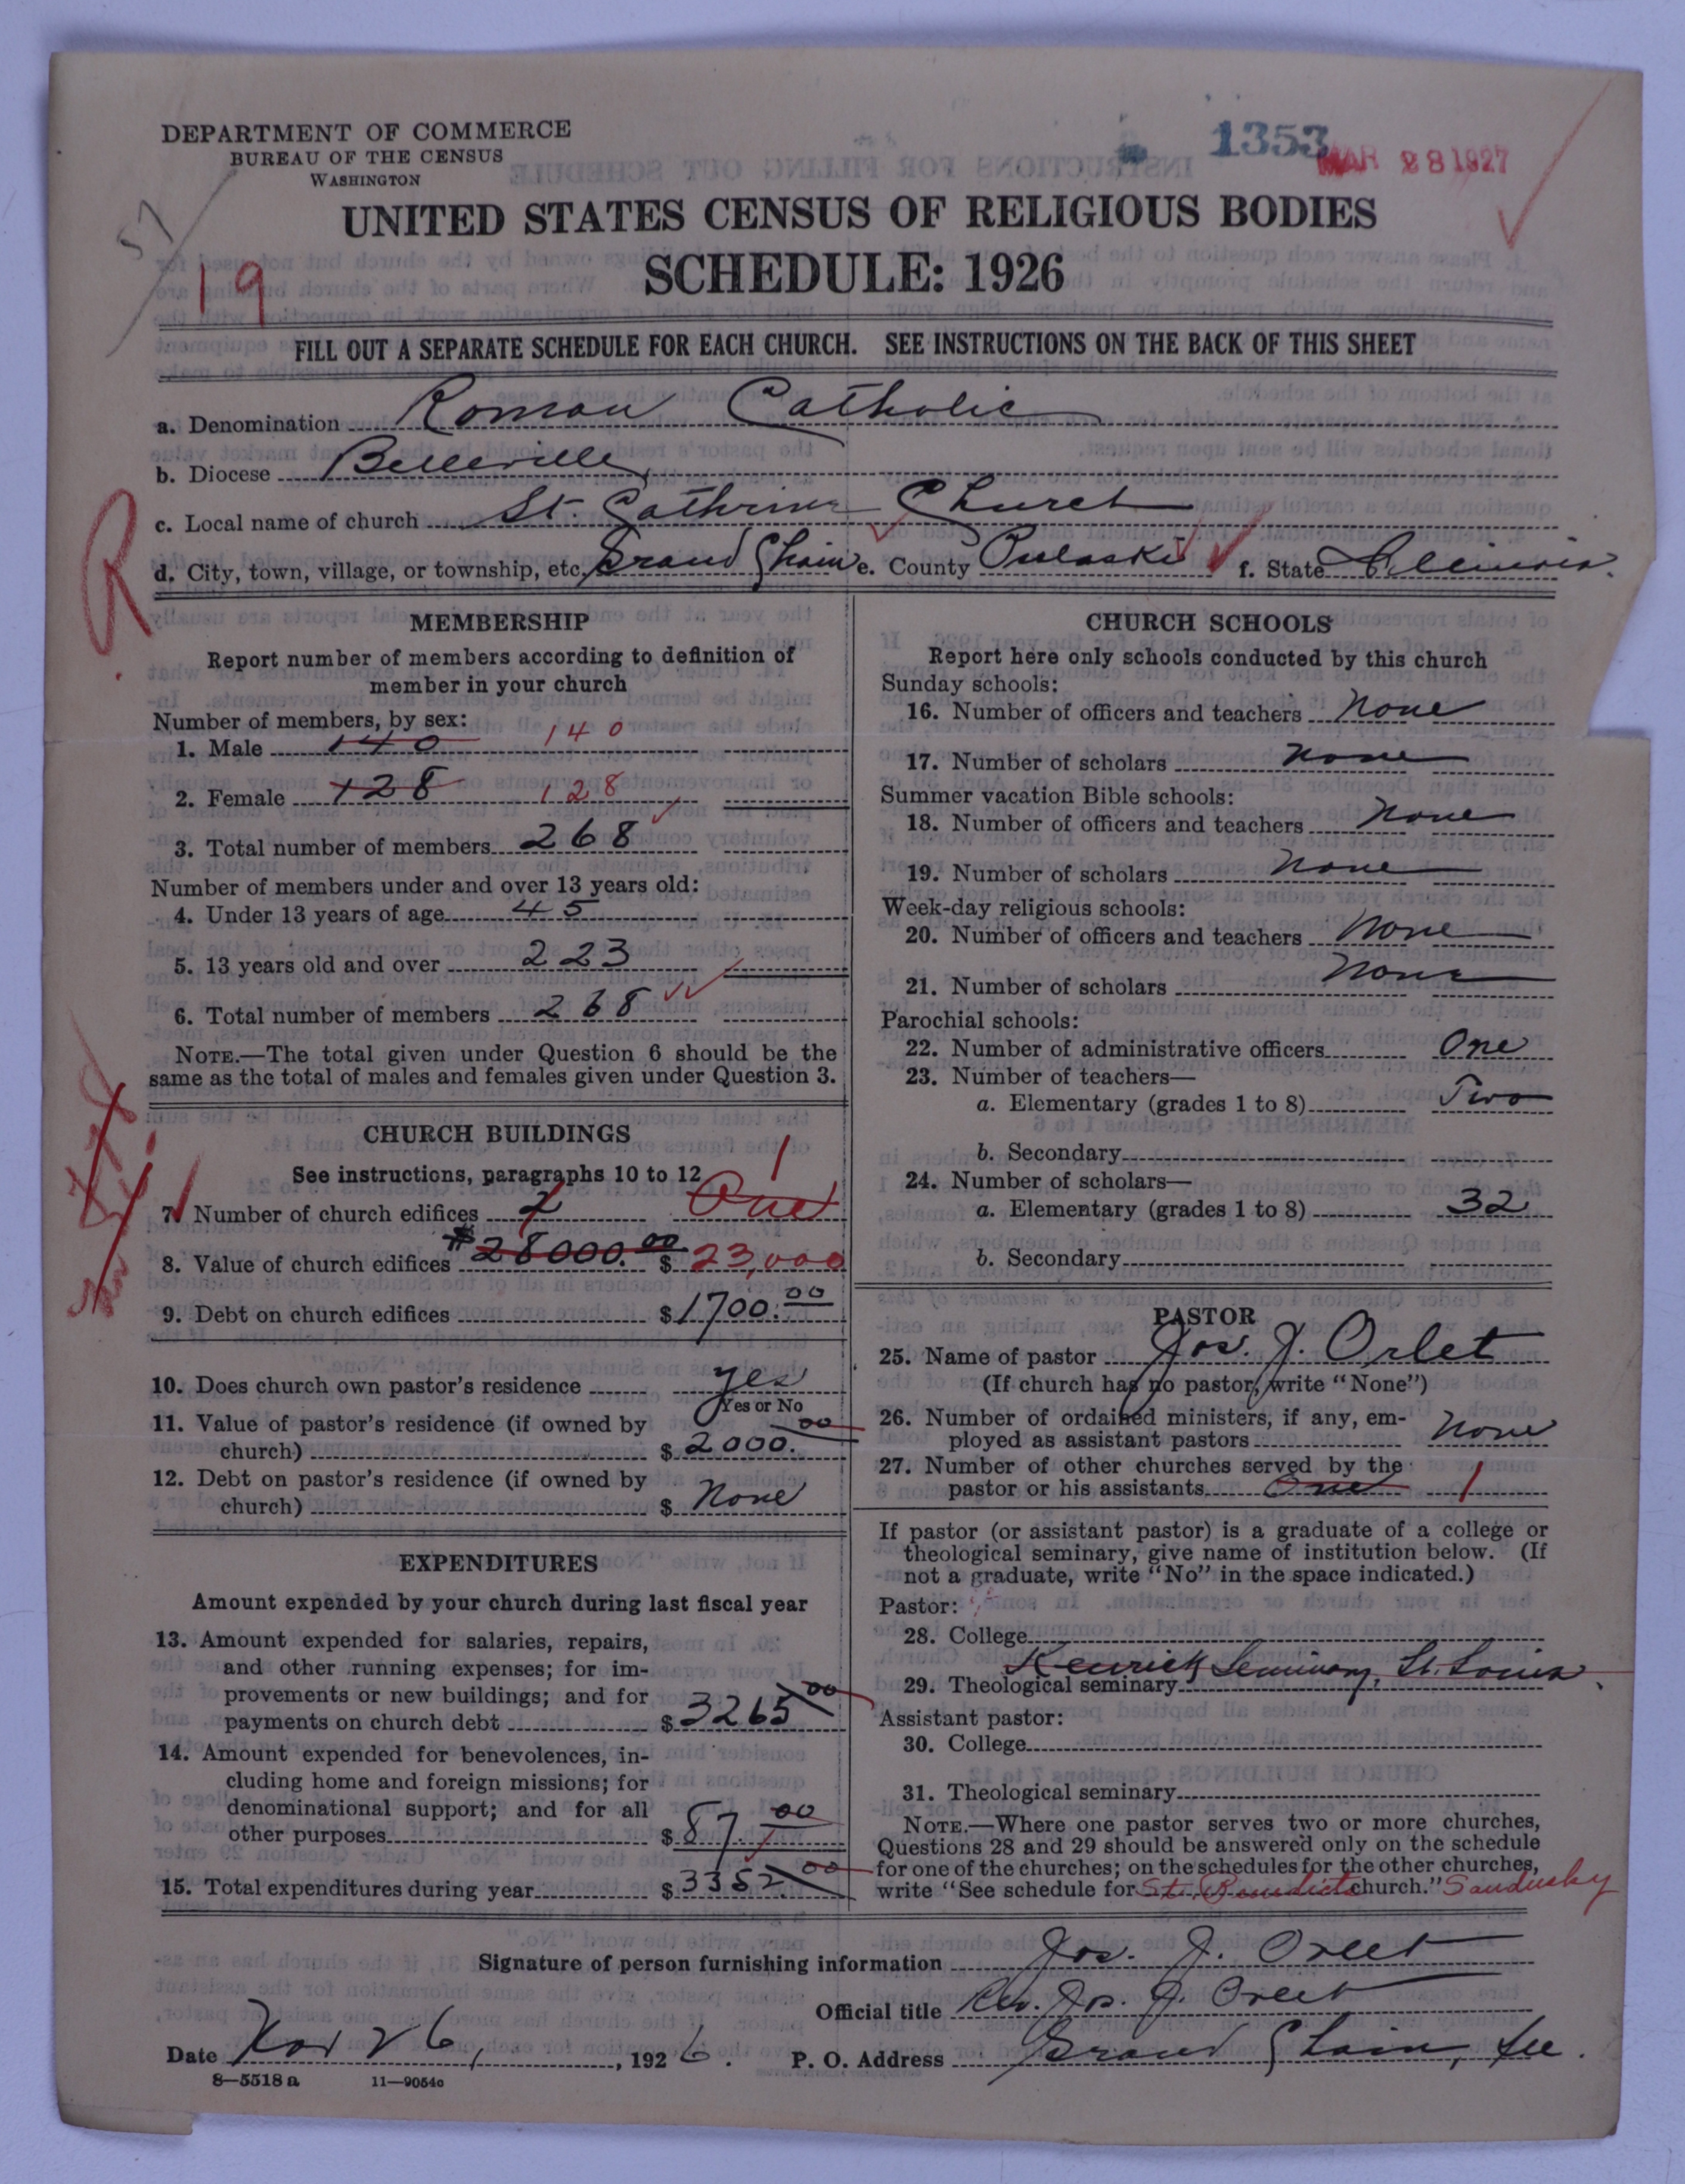 DEPARTMENT OF COMMERCE
BUREAU OF THE CENSUS
WASHINGTON
1353
MAR 28 1927
57
19
UNITED STATES CENSUS OF RELIGIOUS BODIES
SCHEDULE: 1926
FILL OUT A SEPARATE SCHEDULE FOR EACH CHURCH. SEE INSTRUCTIONS ON THE BACK OF THIS SHEET
a. Denomination Roman Catholic
b. Diocese Belleville
c. Local name of church St. Cathrine Church
d. City, town, village, or township, etc. Grand Chain e. County Pulaski f. State Illinois.
R
MEMBERSHIP
Report number of members according to definition of
member in your church
Number of members, by sex:
1. Male 140 140
2. Female 128 128
3. Total number of members 268
Number of members under and over 13 years old:
4. Under 13 years of age 45
5. 13 years old and over 223
6. Total number of members 268
NOTE.—The total given under Question 6 should be the
same as the total of males and females given under Question 3.
CHURCH BUILDINGS
See instructions, paragraphs 10 to 12
7. Number of church edifices 2 One 1
8. Value of church edifices $28000.00 $ 23,000
9. Debt on church edifices $1700.00
10. Does church own pastor's residence yes
Yes or No
11. Value of pastor's residence (if owned by
church) $ 2000.00
12. Debt on pastor's residence (if owned by
church) $ None
EXPENDITURES
Amount expended by your church during last fiscal year
13. Amount expended for salaries, repairs,
and other running expenses; for im-
provements or new buildings; and for
payments on church debt $ 3265 00
14. Amount expended for benevolences, in-
cluding home and foreign missions; for
denominational support; and for all
other purposes $ 87.00
15. Total expenditures during year $ 3352.00
CHURCH SCHOOLS
Report here only schools conducted by this church
Sunday schools:
16. Number of officers and teachers None
17. Number of scholars None
Summer vacation Bible schools:
18. Number of officers and teachers None
19. Number of scholars None
Week-day religious schools:
20. Number of officers and teachers None
21. Number of scholars None
Parochial schools:
22. Number of administrative officers One
23. Number of teachers—
a. Elementary (grades 1 to 8) Two
b. Secondary
24. Number of scholars—
a. Elementary (grades 1 to 8) 32
b. Secondary
PASTOR
25. Name of pastor Jos. J. Orlet
(If church has no pastor, write "None")
26. Number of ordained ministers, if any, em-
ployed as assistant pastors None
27. Number of other churches served by the
pastor or his assistants One 1
If pastor (or assistant pastor) is a graduate of a college or
theological seminary, give name of institution below. (If
not a graduate, write "No" in the space indicated.)
Pastor:
28. College
29. Theological seminary Kenrick Seminary, St. Louis
Assistant pastor:
30. College
31. Theological seminary
NOTE.—Where one pastor serves two or more churches,
Questions 28 and 29 should be answered only on the schedule
for one of the churches; on the schedules for the other churches,
write "See schedule for St. Benedicts church." Sandusky
Signature of person furnishing information Jos. J. Orlet
Official title Rev. Jos. J. Orlet
Date Nov 26, , 1926. P. O. Address Grand Chain, Ill.
8—5518 a 11—9054c